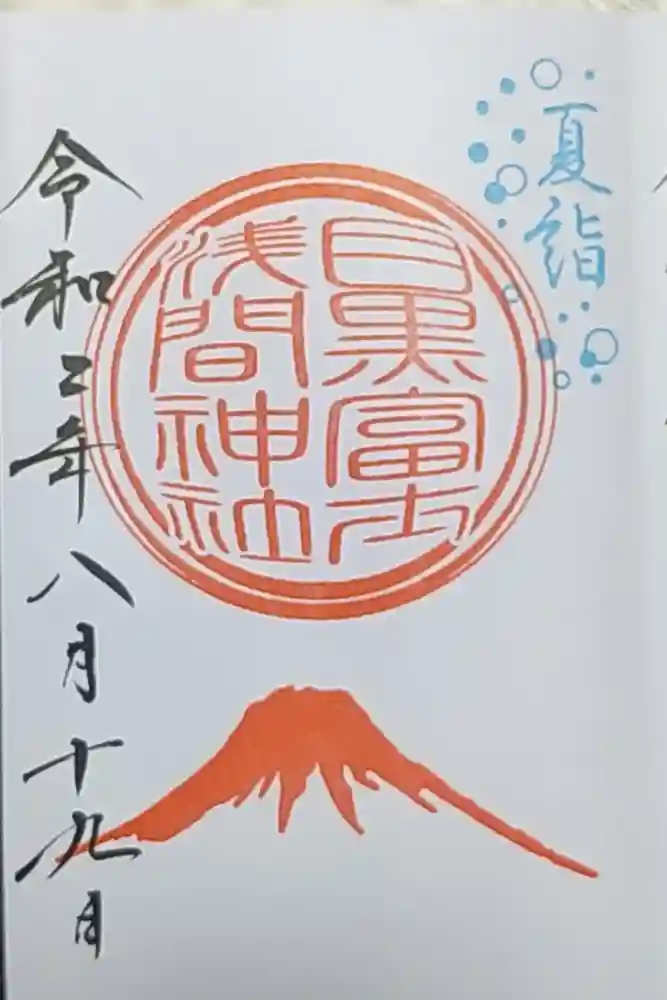 夏詣
目黒富士
浅間神社
令和三年八月十九日